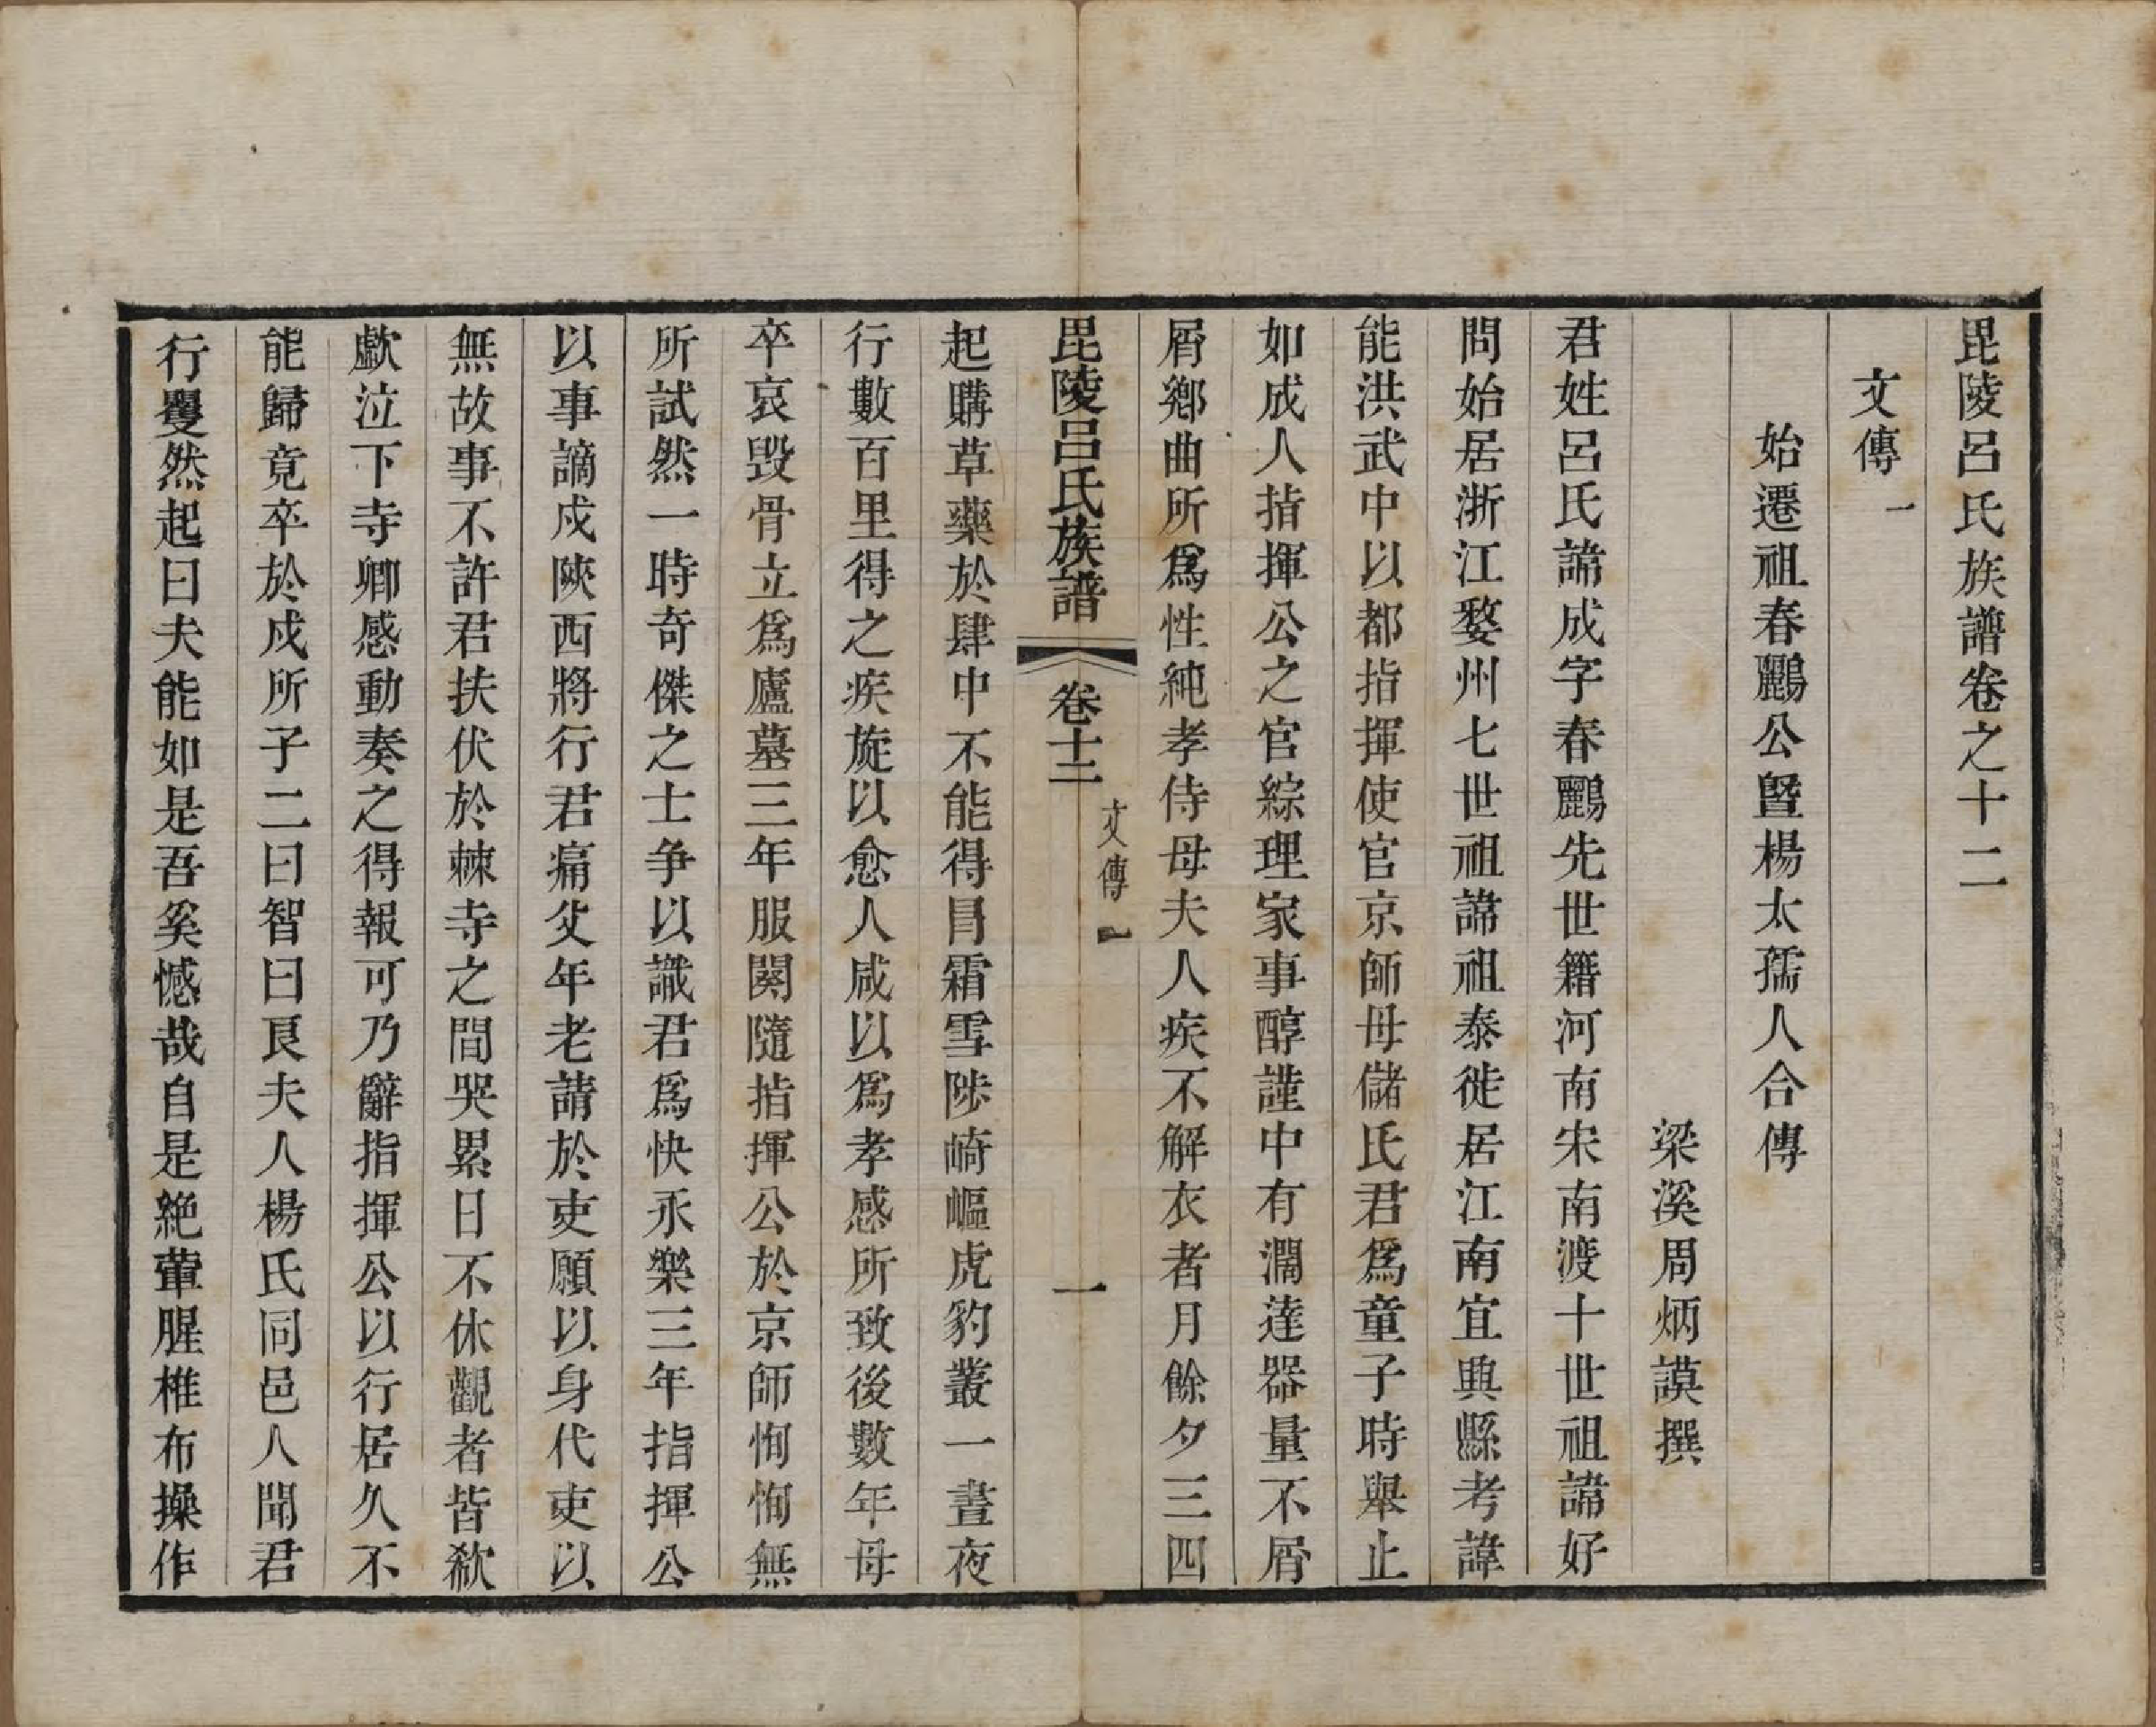 毘陵呂氏族譜卷之十二
文傳一
始遷祖春鸝公暨楊太孺人合傳
梁溪周炳謨撰
君姓呂氏諱成字春鸝先世籍河南宋南渡十世祖諱好
問始居浙江婺州七世祖諱祖泰徙居江南宜興縣考諱
能洪武中以都指揮使官京師母儲氏君爲童子時舉止
如成人指揮公之官綜理家事醇謹中有濶達器量不屑
屑鄉曲所爲性純孝侍母夫人疾不解衣者月餘夕三四
毘陵呂氏族譜 卷十二 文傳一 一
起購草藥於肆中不能得冒霜雪陟崎嶇虎豹叢一晝夜
行數百里得之疾旋以愈人咸以爲孝感所致後數年母
卒哀毀骨立爲廬墓三年服闋隨指揮公於京師恂恂無
所試然一時奇傑之士争以識君爲快永樂三年指揮公
以事謫戍陝西將行君痛父年老請於吏願以身代吏以
無故事不許君扶伏於棘寺之間哭累日不休觀者皆欷
歔泣下寺卿感動奏之得報可乃辭指揮公以行居久不
能歸竟卒於戍所子二曰智曰良夫人楊氏同邑人聞君
行矍然起曰夫能如是吾奚憾哉自是絶葷腥椎布操作